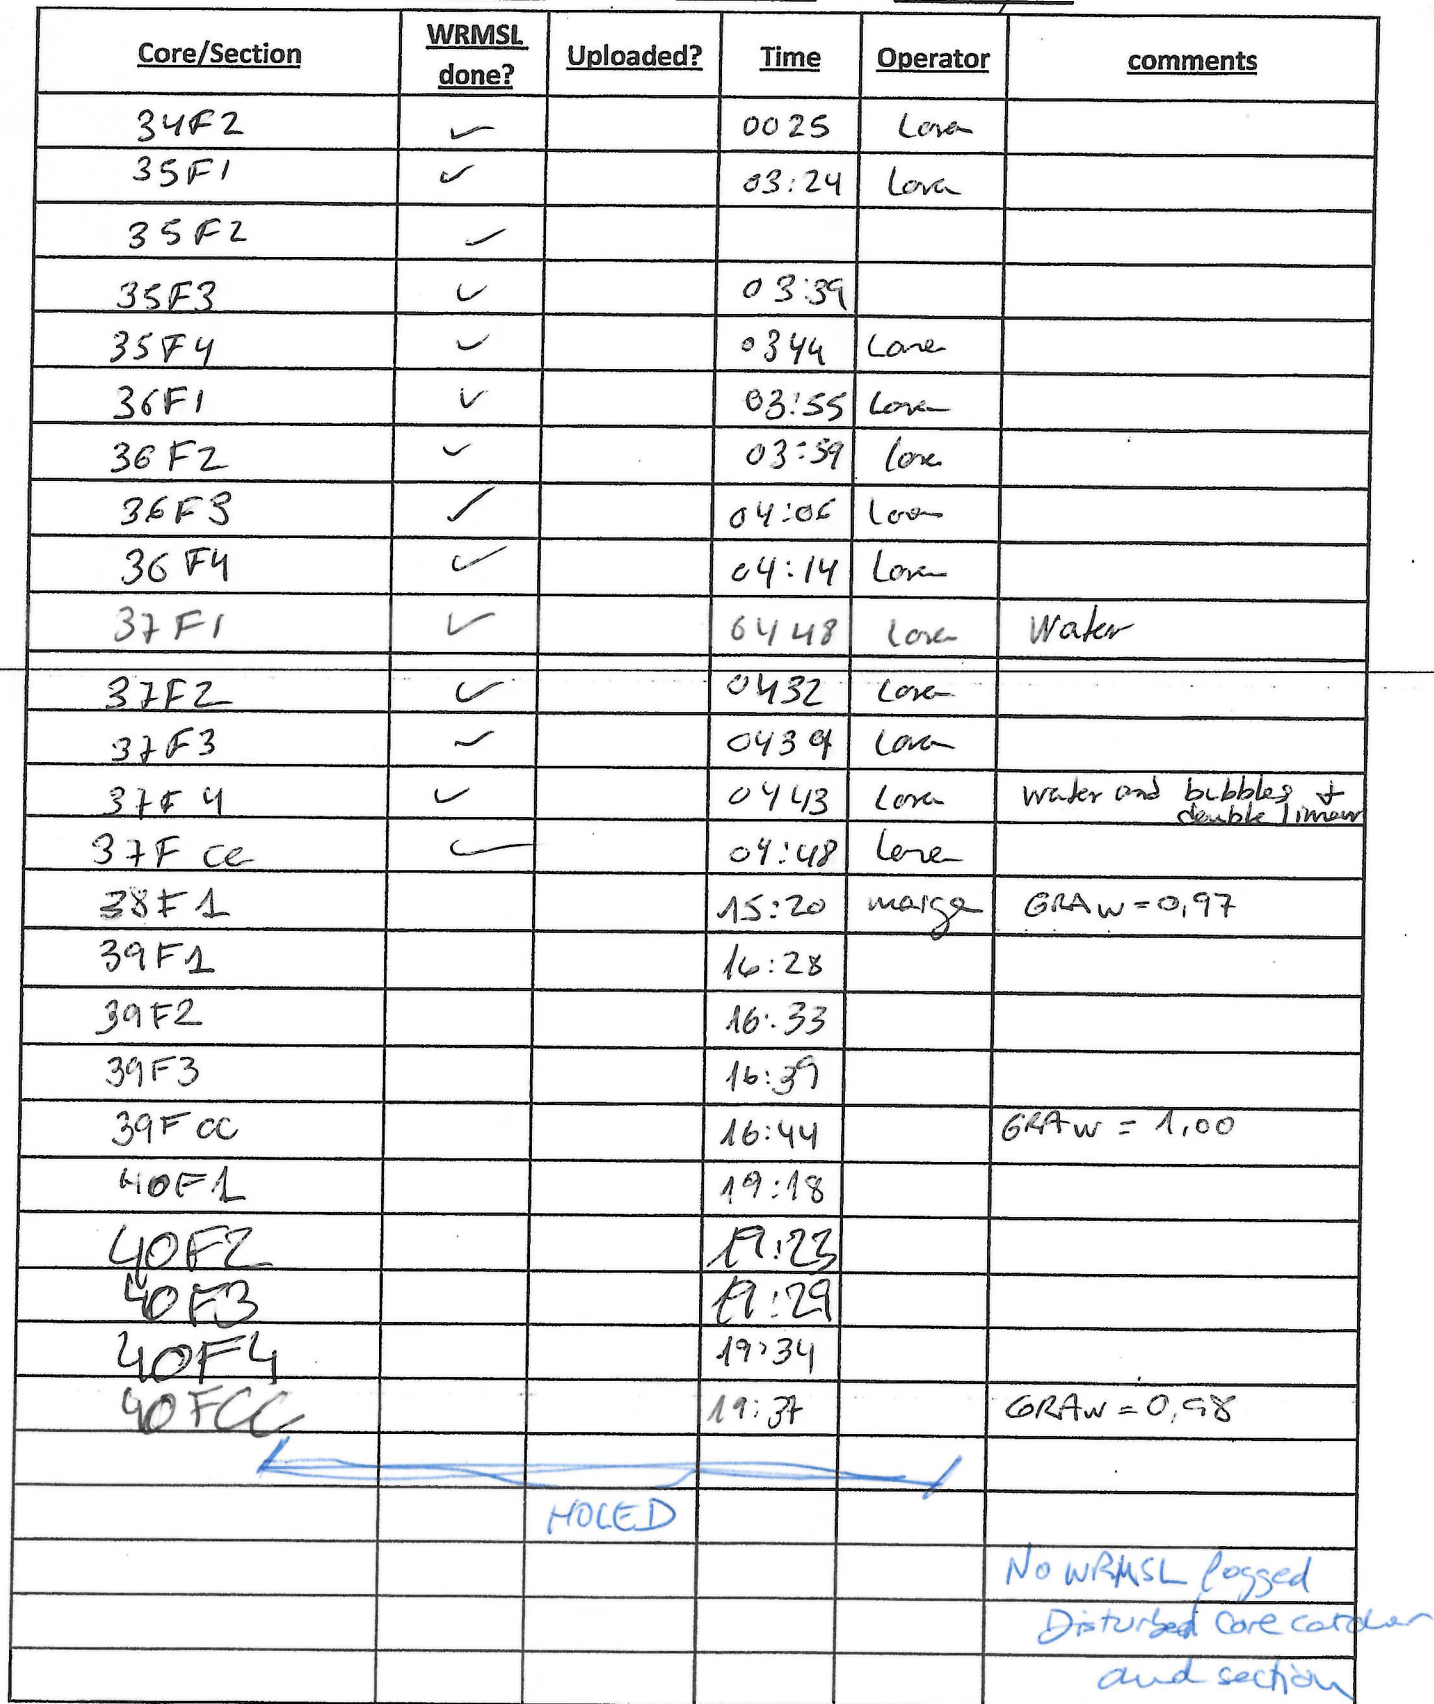 Core/Section WRMSL done? Uploaded? Time Operator comments
34F2 ✓ 0025 Lore
35F1 ✓ 03:24 Lore
35F2 ✓
35F3 ✓ 03:39
35F4 ✓ 0344 Lore
36F1 ✓ 03:55 Lore
36F2 ✓ 03:59 Lore
36F3 ✓ 04:06 Lore
36F4 ✓ 04:14 Lore
37F1 ✓ 0448 Lore Water
37F2 ✓ 0432 Lore
37F3 ✓ 0439 Lore
37F4 ✓ 0443 Lore water and bubbles +
double
37F CC ✓ 04:48 Lore
38F1 15:20 GRAW = 0,97
39F1 16:28
39F2 16:33
39F3 16:39
39F CC 16:44 GRAW = 1,00
40F1 19:18
40F2 19:23
40F3 19:29
40F4 19:34
40FCC 19:37 GRAW = 0,98
HOLE D
No WRMSL logged
Disturbed core catcher
and section